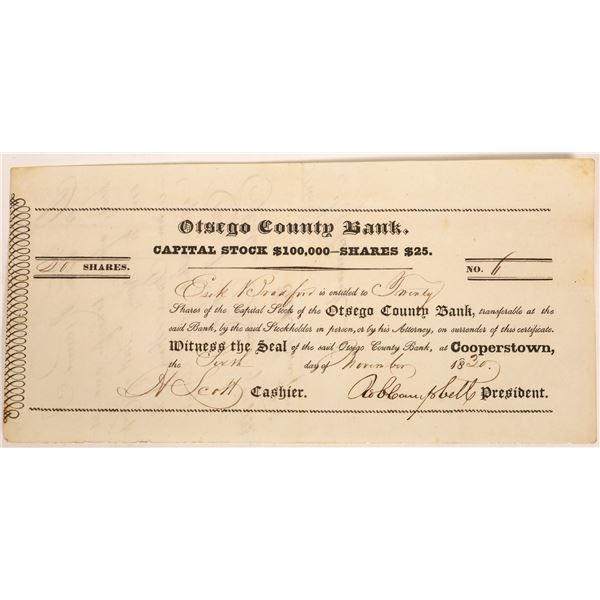 Otsego County Bank.
CAPITAL STOCK $100,000—SHARES $25.
20 SHARES.
NO. 6
Esek Bradford is entitled to Twenty
Shares of the Capital Stock of the Otsego County Bank, transferable at the
said Bank, by the said Stockholder in person, or by his Attorney, on surrender of this certificate.
Witness the Seal of the said Otsego County Bank, at Cooperstown,
the Sixth day of November 1830.
H Scott Cashier. Rob Campbell President.